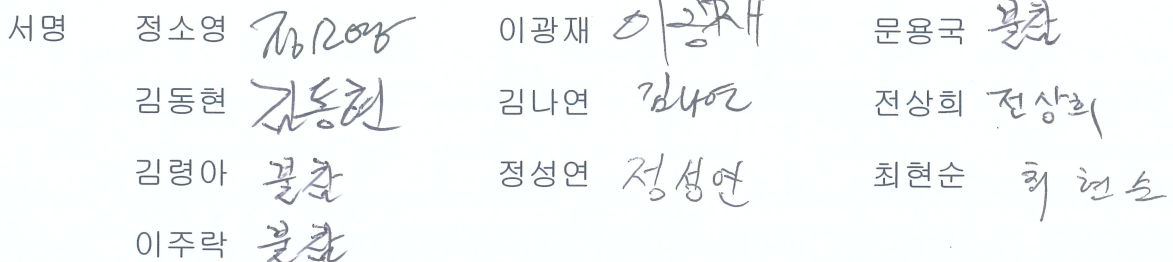 서명 정소영 정소영 이광재 이광재 문용국 불참
김동현 김동현 김나연 김나연 전상희 전상희
김령아 불참 정성연 정성연 최현순 최현순
이주락 불참